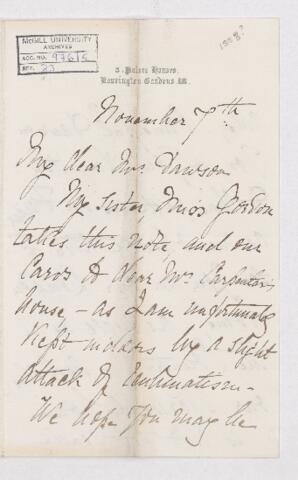 McGILL UNIVERSITY
ARCHIVES
ACC. NO. 976/5
REF. 23
188
5, Palace Houses,
Kensington Gardens W.
November 7th
My dear Mrs. Dawson
My Sister Miss Gordon
takes this note and our
Cards to dear Mrs Carpenter's
house - as I am unfortunately
kept indoors by a slight
attack of Rheumatism -
We hope you may be